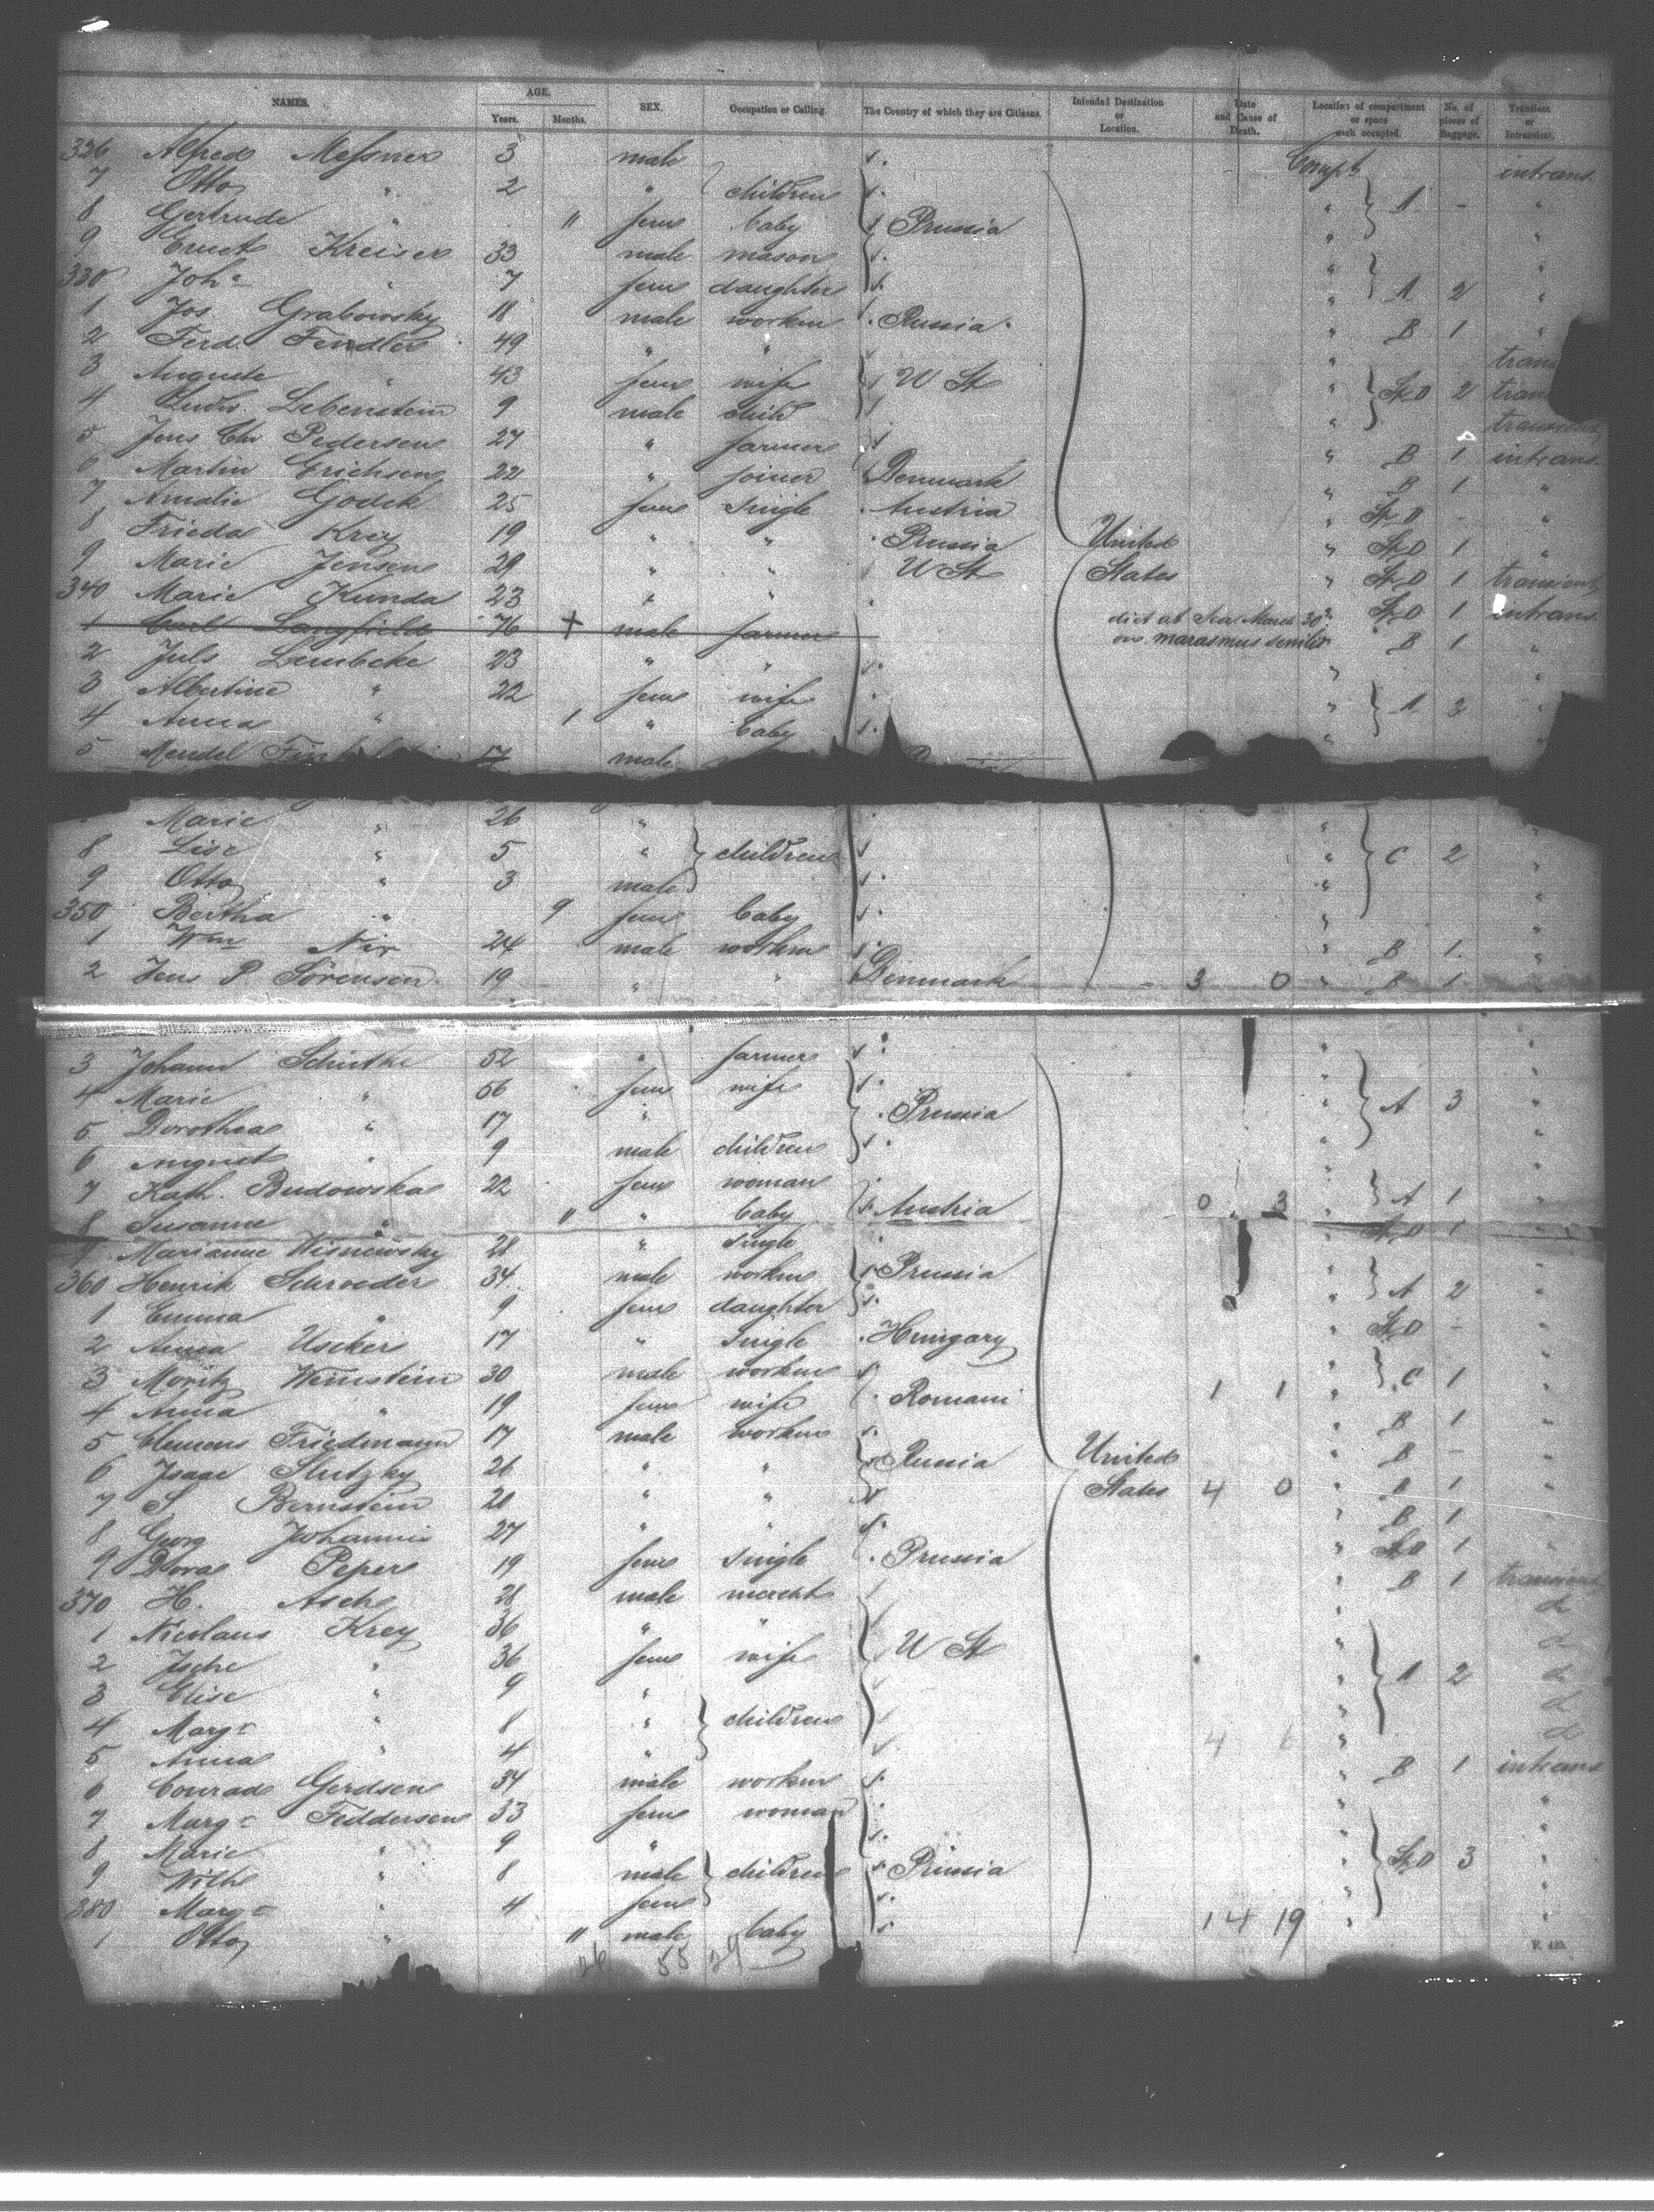 NAMES. AGE. Years. Months. SEX. Occupation or Calling. The Country of which they are Citizens. Intended Destination or Location. Date and Cause of Death. Location of compartment or space each occupied. No. of pieces of Baggage. Transient or Intransient.
326 Alfred Messner 3 male Compt intrans.
7 Otto " 2 " children A - "
8 Gertrude " 11 fem baby Prussia " "
9 Ernst Kreiser 33 male mason " "
330 Joh.a " 7 fem daughter " A 2 "
1 Jos Grabowsky 18 male workm Russia " B 1 "
2 Ferd. Fendler 49 " " " trans
3 Auguste " 43 fem wife W St " St. D 2 trans
4 Ludw. Lebenstein 9 male child " transient
5 Jens Chr Pedersen 27 " farmer " B 1 intrans.
6 Martin Erichsen 22 " joiner Denmark " B 1 "
7 Amalie Godek 25 fem single Austria " St. D - "
8 Frieda Krey 19 " " Prussia United " St. D 1 "
9 Marie Jensen 29 " " U St States " St. D 1 transient
340 Marie Kunda 23 " " " St. D 1 intrans.
1 Carl Langfield 76 + male farmer died at Sea March 30th on marasmus senilis " B 1 "
2 Juls Lembcke 23 " " " "
3 Albertine " 22 fem wife " A 3 "
4 Anna " 1 " baby " "
5 Mendel 17 male
Marie " 26 " " "
8 Lise " 5 " children " C 2 "
9 Otto " 3 male " "
350 Bertha " 9 fem baby " "
1 Wm Nix 24 male workm " B 1. "
2 Jens P Sörensen 19 " " Denmark - 3 0 " B 1 "
3 Johann Schutke 52 " farmer " "
4 Marie " 56 fem wife " "
5 Dorothea " 17 " Prussia " A 3 "
6 August " 9 male children " "
7 Kath. Budowska 22 fem woman " "
8 Susanne " 11 " baby Austria 0 3 " A 1 "
9 Marianne Wisnewsky 28 " single " St. D 1 "
360 Henrik Schroeder 34 male workm Prussia " "
1 Emma " 9 fem daughter " A 2 "
2 Anna Uscker 17 " single Hungary " St. D - "
3 Moritz Weinstein 30 male workm " C 1 "
4 Anna " 19 fem wife Romani 1 1 " "
5 Clemens Friedmann 17 male workm " B 1 "
6 Isaac Slutzky 26 " " Russia United " B - "
7 S Bernstein 20 " " States 4 0 " B 1 "
8 Georg Johannis 27 " " " B 1 "
9 Dora Peper 19 fem single Prussia " St. D 1 "
370 H. Asch 28 male mercht " B 1 transient
1 Nicolaus Krey 36 " " " do
2 " 36 fem wife U St " do
3 Elise " 9 " " A 2 do
4 Marg.a " 8 " children " do
5 Anna " 4 " 4 6 " do
6 Conrad Gerdsen 34 male workm " B 1 intrans
7 Marg.a Feddersen 33 fem woman " "
8 Marie " 9 " " "
9 Wilh " 8 male children Prussia " St. D 3 "
380 Marg.a " 4 fem " "
1 Otto " 11 male baby 14 19 " "
26 55 29